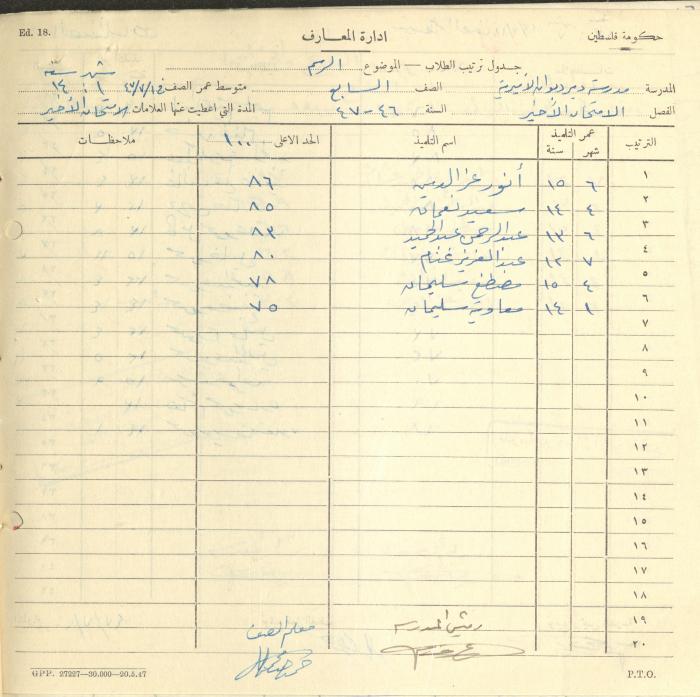 Ed. 18.
حكومة فلسطين
ادارة المعارف
جدول ترتيب الطلاب — الموضوع الرسم
المدرسة مدرسة دير ديوان الأميرية الصف السابع متوسط عمر الصف في ١ / ٧ / ٤٧ شهر ١ سنة ١٤
الفصل الامتحان الأخير السنة ٤٦-٤٧ المدة التي اعطيت عنها العلامات الامتحان الأخير
الترتيب عمر التلميذ شهر سنة اسم التلميذ الحد الاعلى ١٠٠ ملاحظات
١ ٦ ١٥ أنور عز الدين ٨٦
٢ ٤ ١٤ سعيد نعمان ٨٥
٣ ٦ ١٣ عبد الرحمن عبد الحميد ٨٣
٤ ٧ ١٢ عبد العزيز غنام ٨٠
٥ ٤ ١٥ مصطفى سليمان ٧٨
٦ ١ ١٤ معاوية سليمان ٧٥
٧
٨
٩
١٠
١١
١٢
١٣
١٤
١٥
١٦
١٧
١٨
١٩
٢٠
رئيس المدرسه معلم الصف
GPP. 27227—30.000—20.5.47
P.T.O.